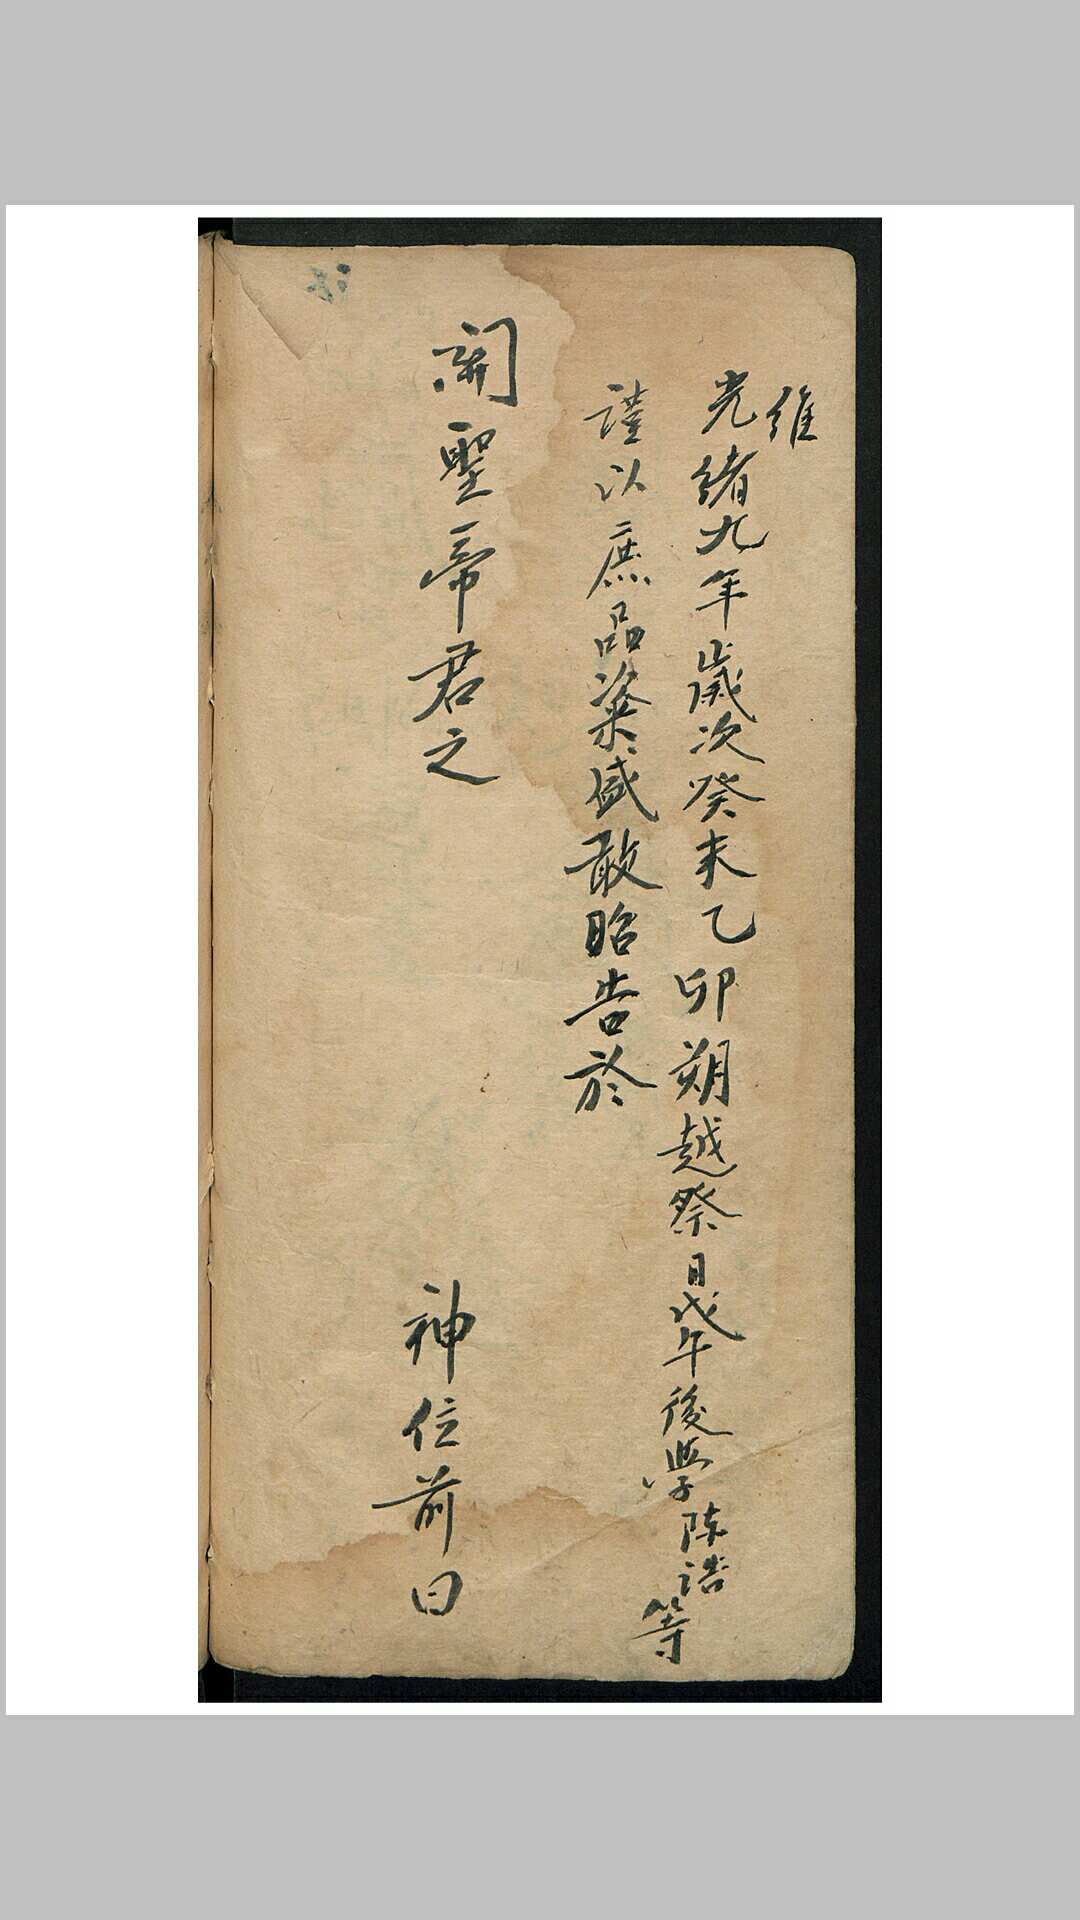 維
光緒九年歲次癸未乙卯朔越祭日戊午後學陈誥等
謹以庶品粢盛敢昭告於
関聖帝君之 神位前曰